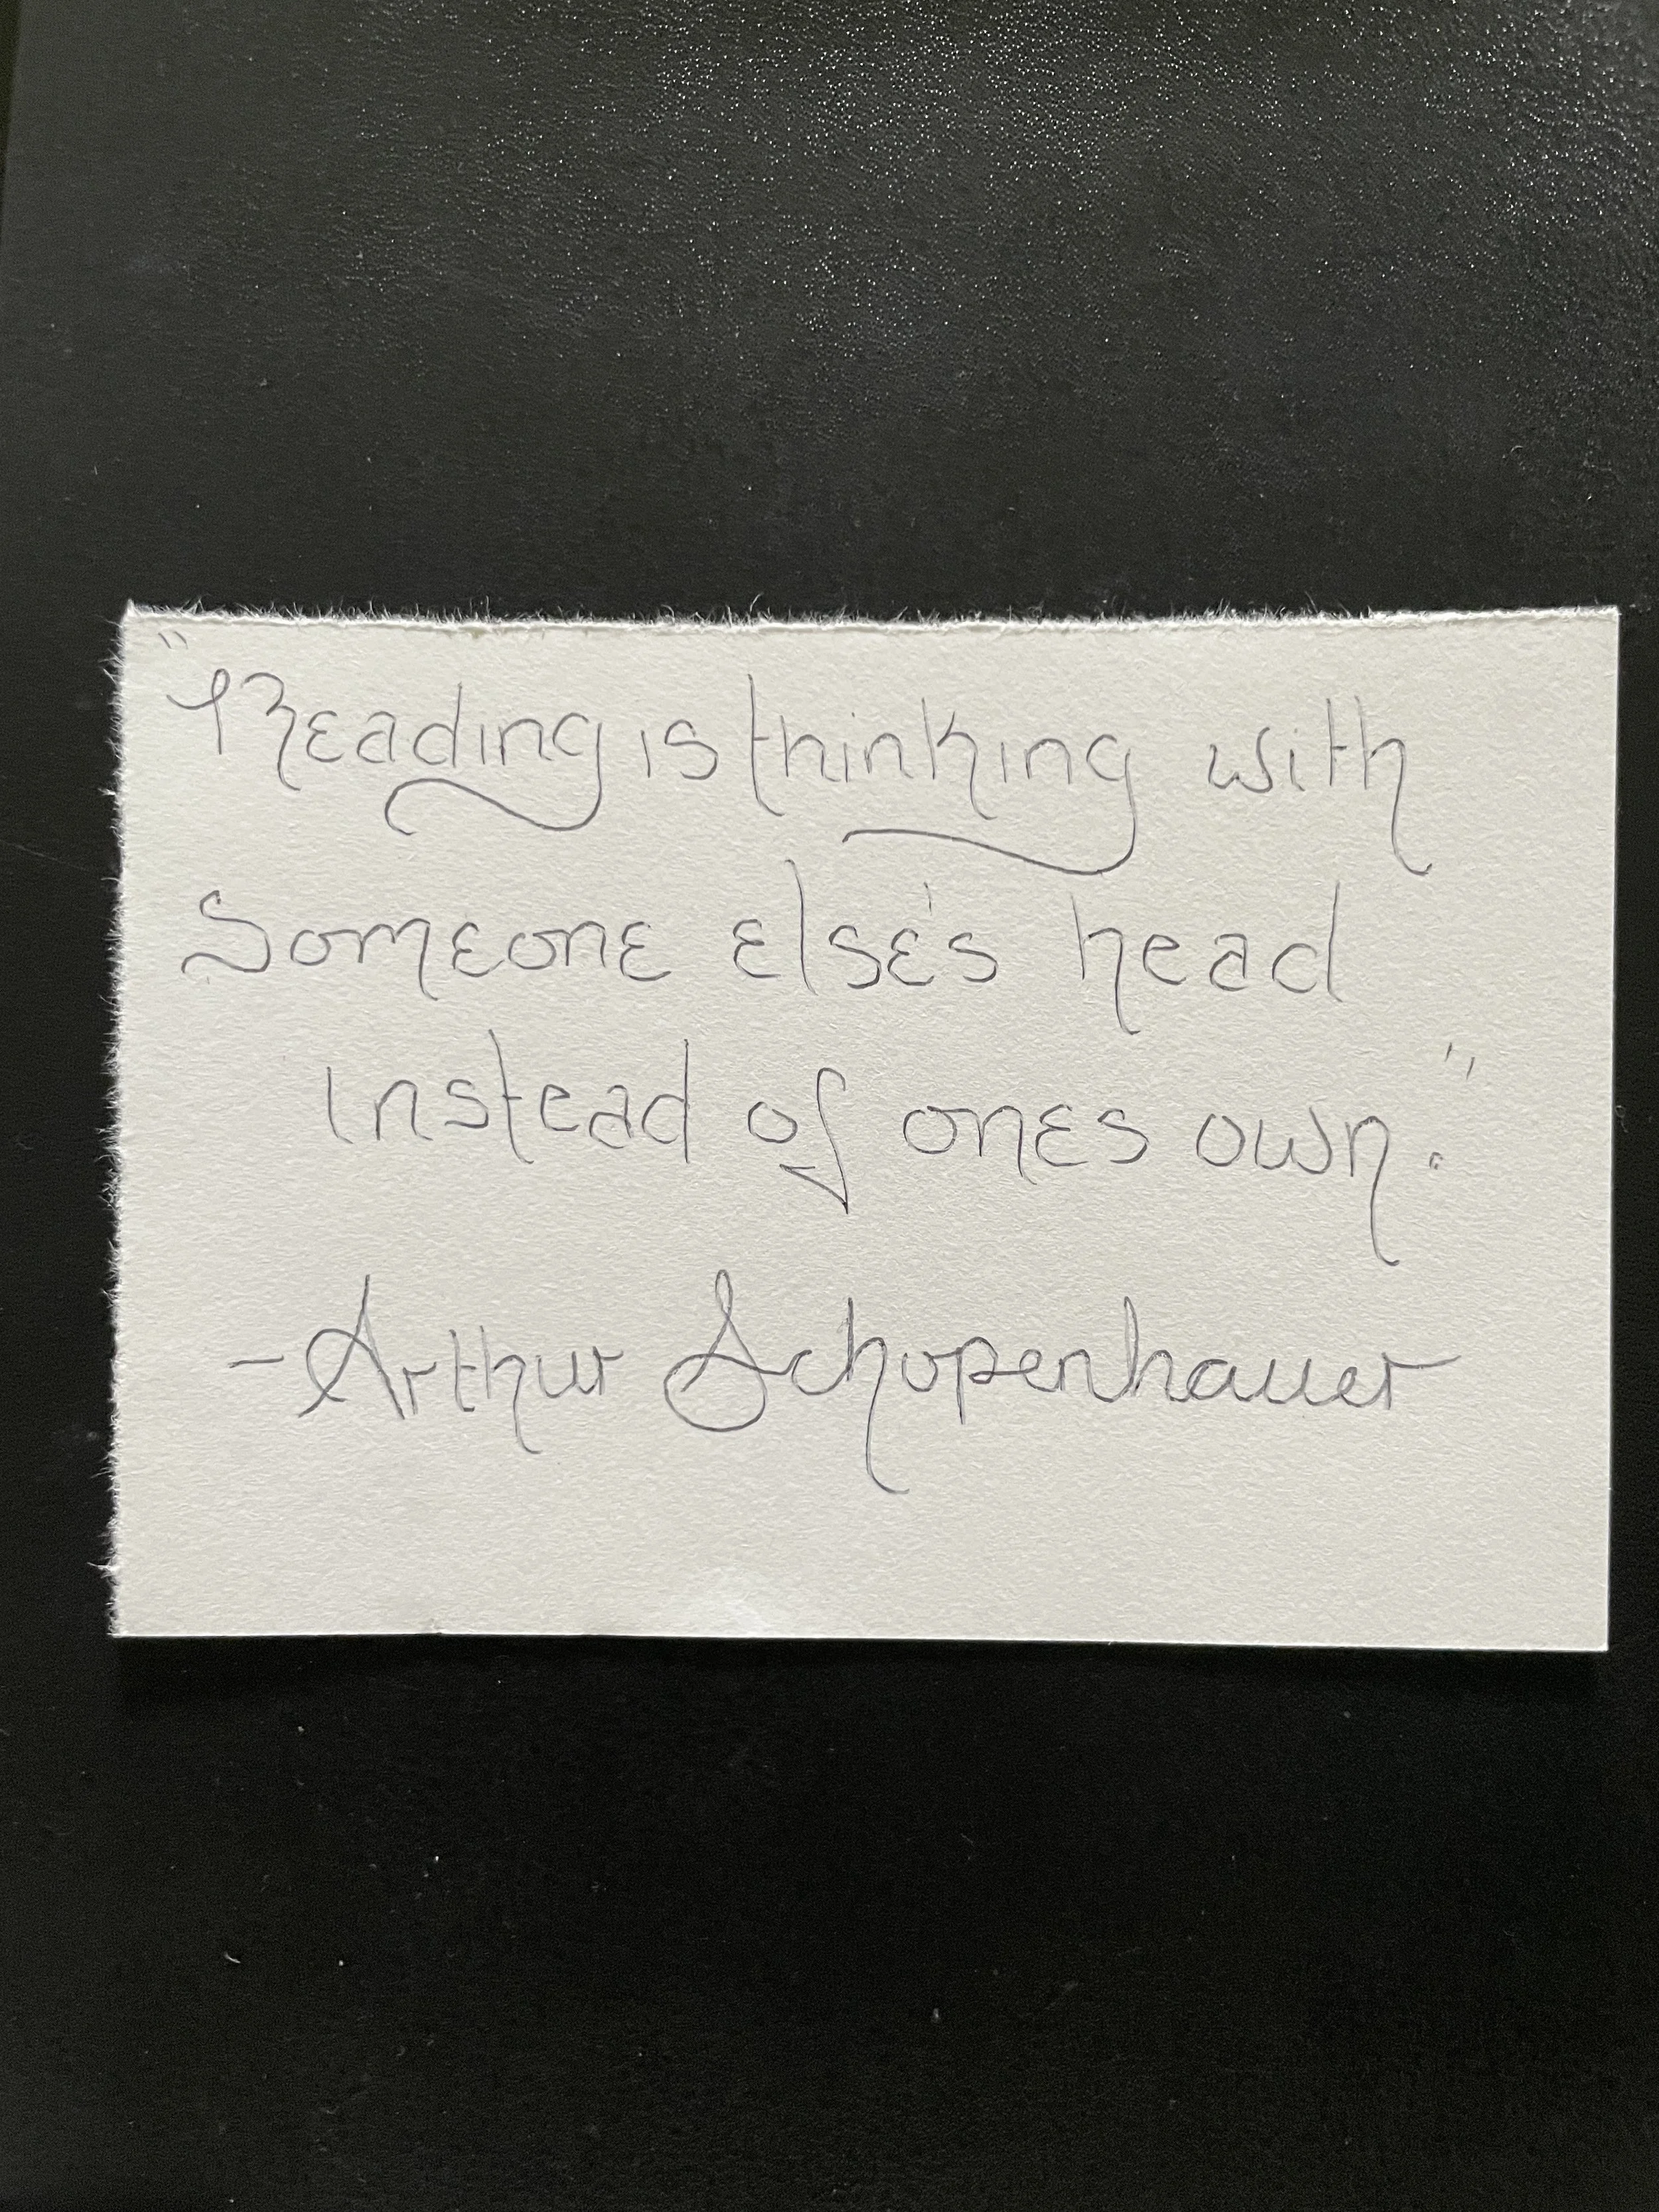 "Reading is thinking with
Someone else's head
instead of ones own."
-Arthur Schopenhauer